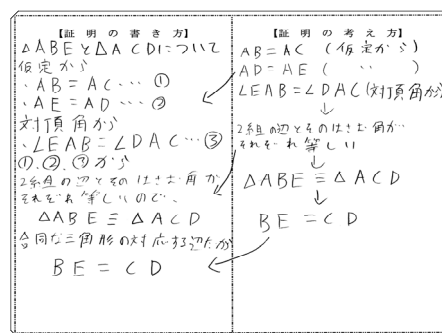 【証明の書き方】
△ABEと△ACDについて
仮定から
・AB=AC… ①
・AE=AD… ②
対頂角から
・∠EAB=∠DAC…③
①,②,③から
2組の辺とそのはさむ角が
それぞれ等しいので、
△ABE≡△ACD
合同な三角形の対応する辺だから
BE=CD
【証明の考え方】
AB=AC (仮定から)
AD=AE ( 〃 )
∠EAB=∠DAC(対頂角から)
↓
2組の辺とそのはさむ角が
それぞれ等しい
↓
△ABE≡△ACD
↓
BE=CD